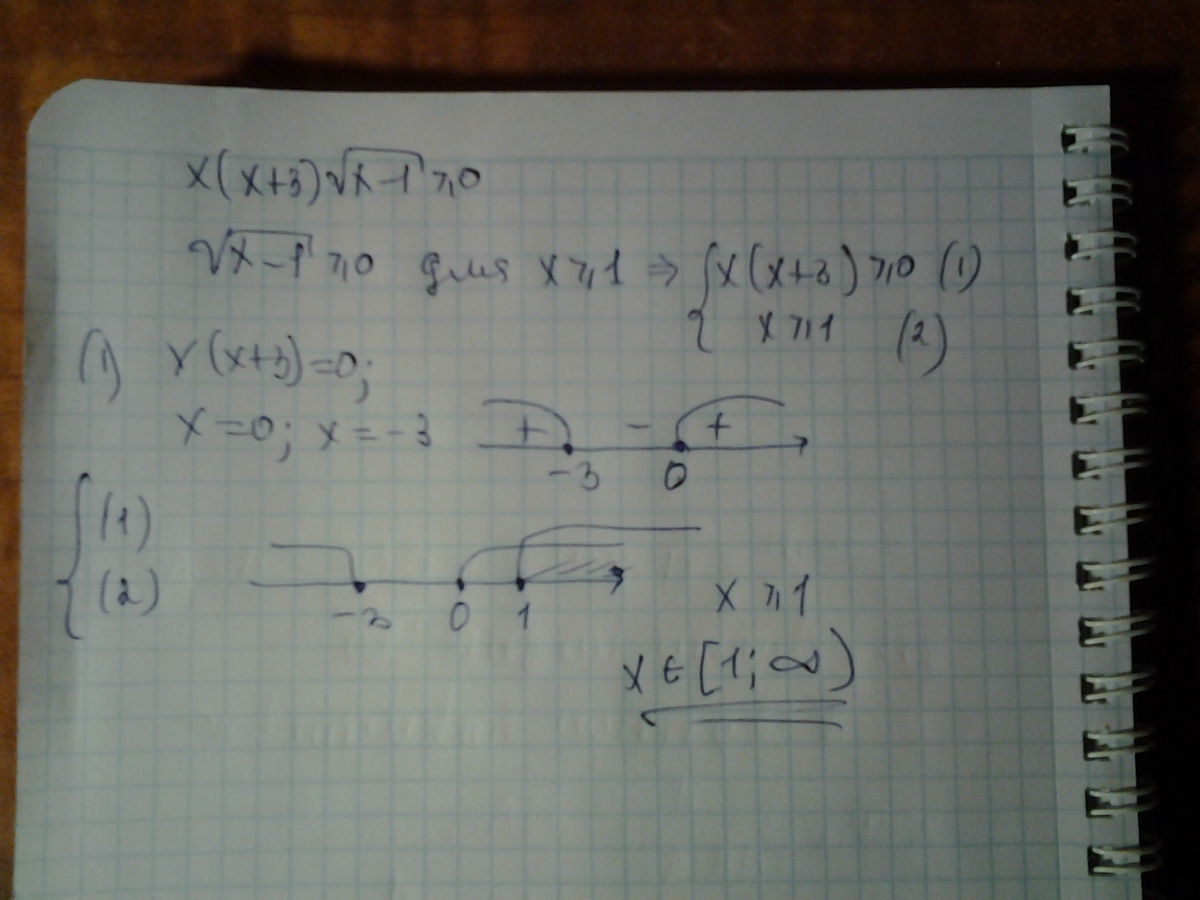 x(x+3)√x-1 ⩾0
√x-1 ⩾0 для x⩾1 ⇒ { x(x+3)⩾0 (1)
x⩾1 (2)
(1) x(x+3)=0;
x=0; x=-3
+ - +
-3 0
{ (1)
(2)
-3 0 1
x⩾1
x∈[1;∞)